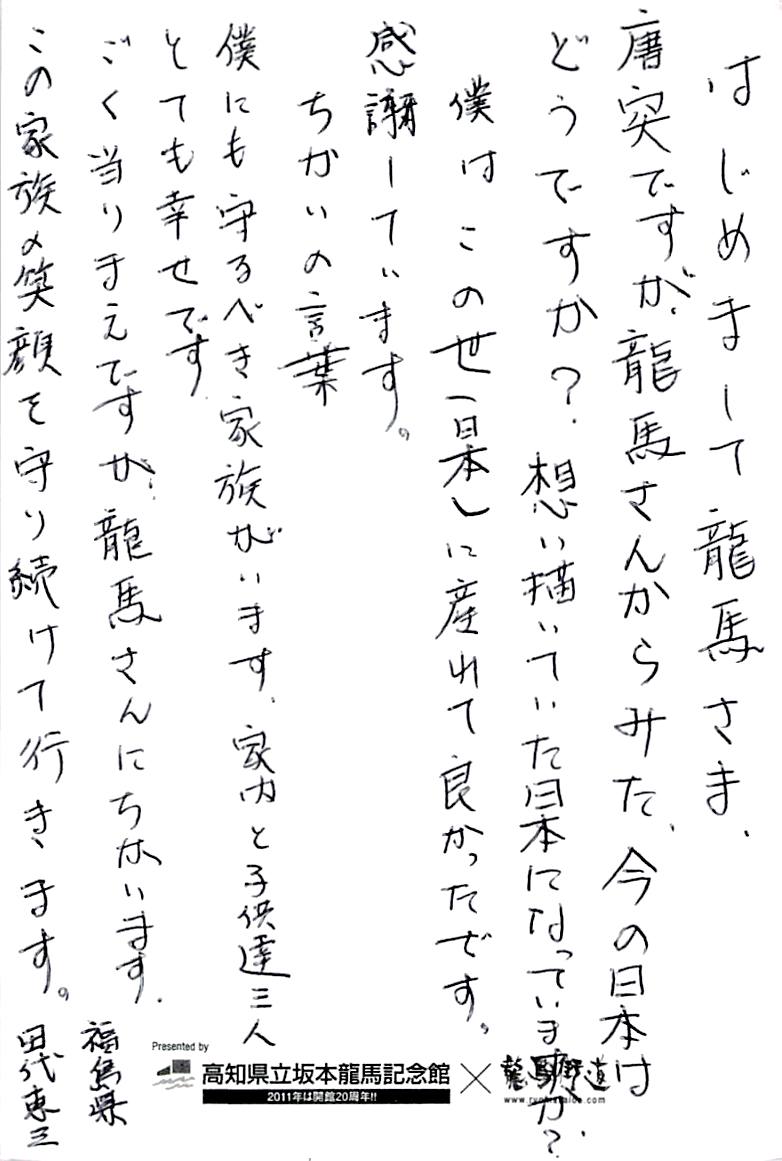 はじめまして龍馬さま、
唐突ですが、龍馬さんからみた、今の日本は
どうですか？想い描いていた日本になっていますか？
僕はこの世「日本」に産れて良かったです。
感謝しています。
ちかいの言葉
僕にも守るべき家族がいます、家内と子供達三人
とても幸せです
ごく当りまえですが、龍馬さんにちかいます、
この家族の笑顔を守り続けて行きます。
福島県
田代恵三
Presented by
高知県立坂本龍馬記念館
2011年は開館20周年!!
×